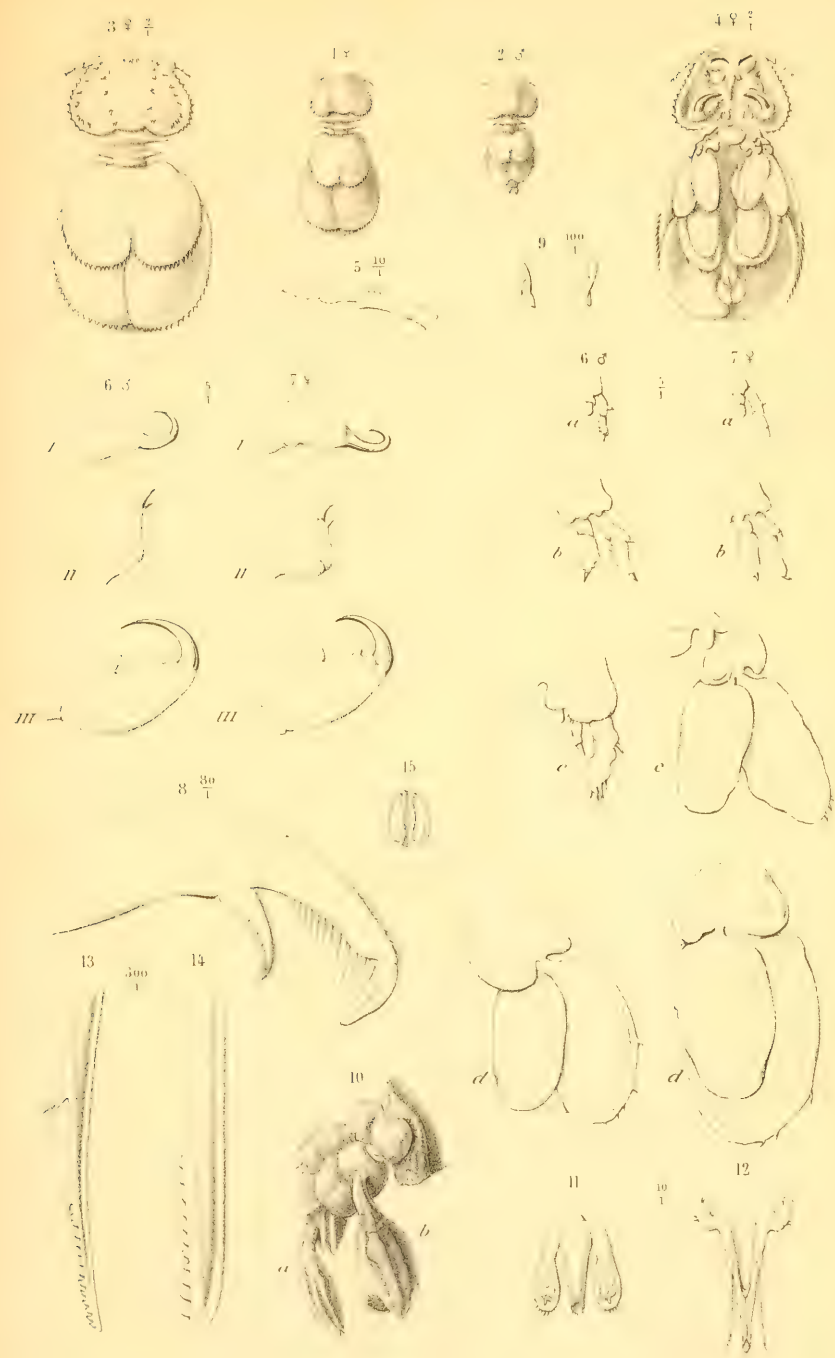 3 ♀ 2/1
1 ♀
2 ♂
4 ♀ 2/1
5 10/1
9 100/1
6 ♂ 5/1 7 ♀
6 ♂ 5/1 7 ♀
a a
I I
b b
II II
III III
c c
8 80/1
15
13 300/1 14
d d
10
a b
11 10/1 12